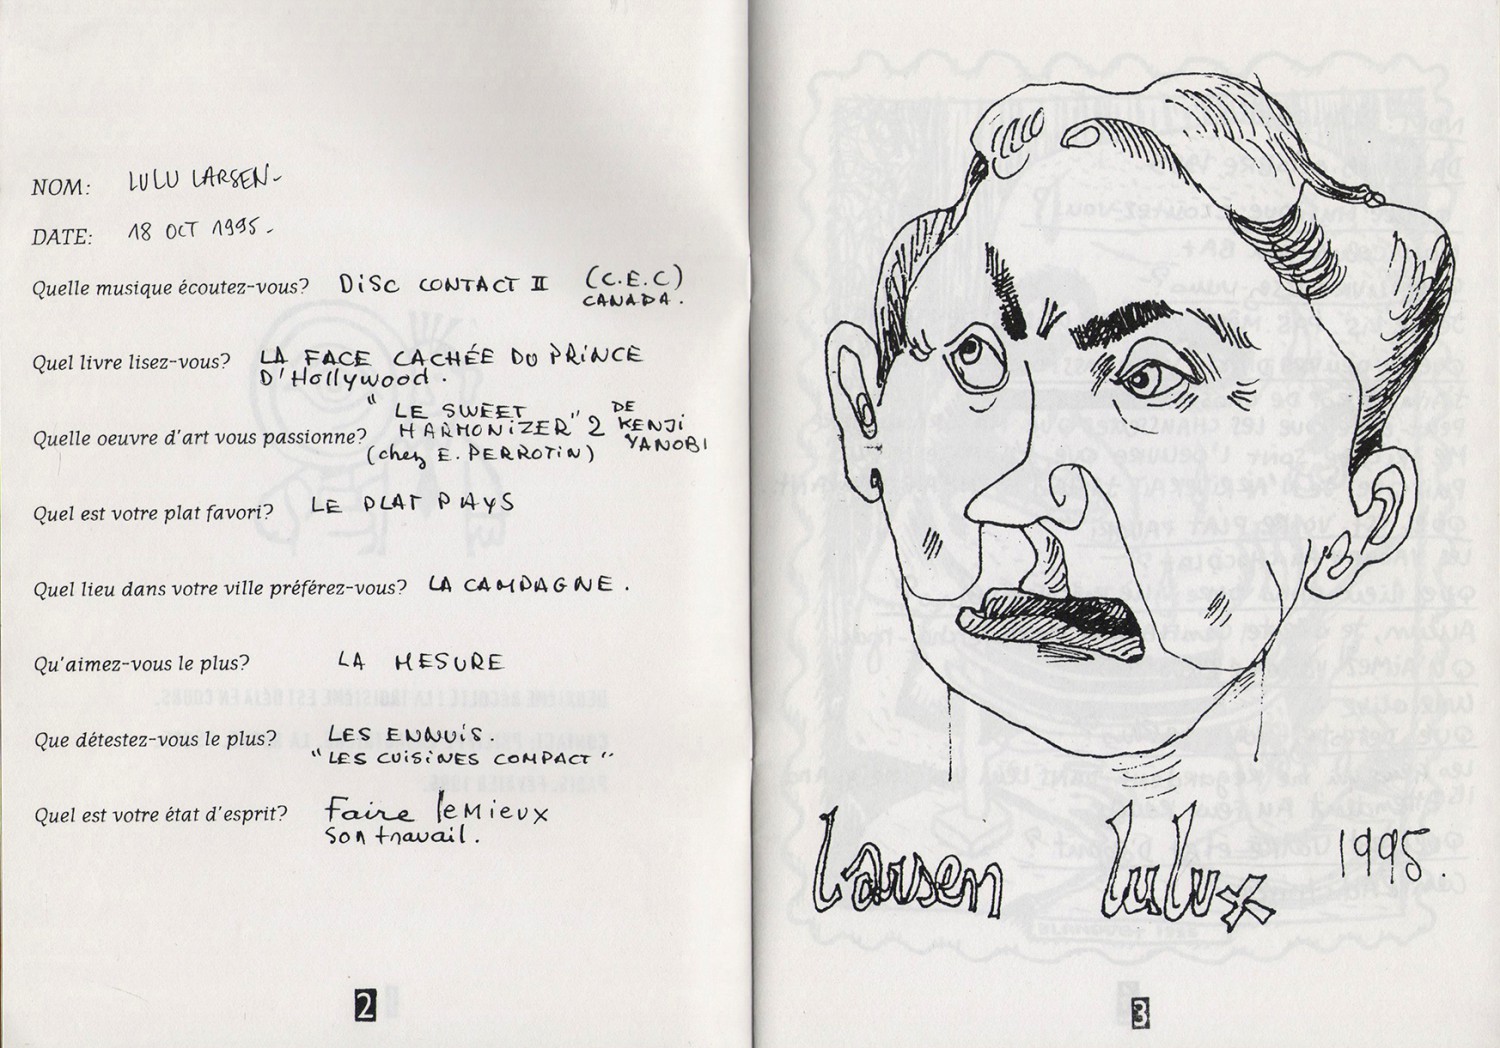 NOM: LULU LARSEN-
DATE: 18 OCT 1995-
Quelle musique écoutez-vous? DISC CONTACT II (C.E.C)
CANADA.
Quel livre lisez-vous? LA FACE CACHÉE DU PRINCE
D'Hollywood.
"LE SWEET DE
HARMONIZER" 2 KENJI
Quelle oeuvre d'art vous passionne? YANOBI
(chez E. PERROTIN)
Quel est votre plat favori? LE PLAT PAYS
Quel lieu dans votre ville préférez-vous? LA CAMPAGNE.
Qu'aimez-vous le plus? LA MESURE
Que détestez-vous le plus? LES ENNUIS.
"LES CUISINES COMPACT"
Quel est votre état d'esprit? Faire le Mieux
son travail.
2
Larsen lulu 1995.
3